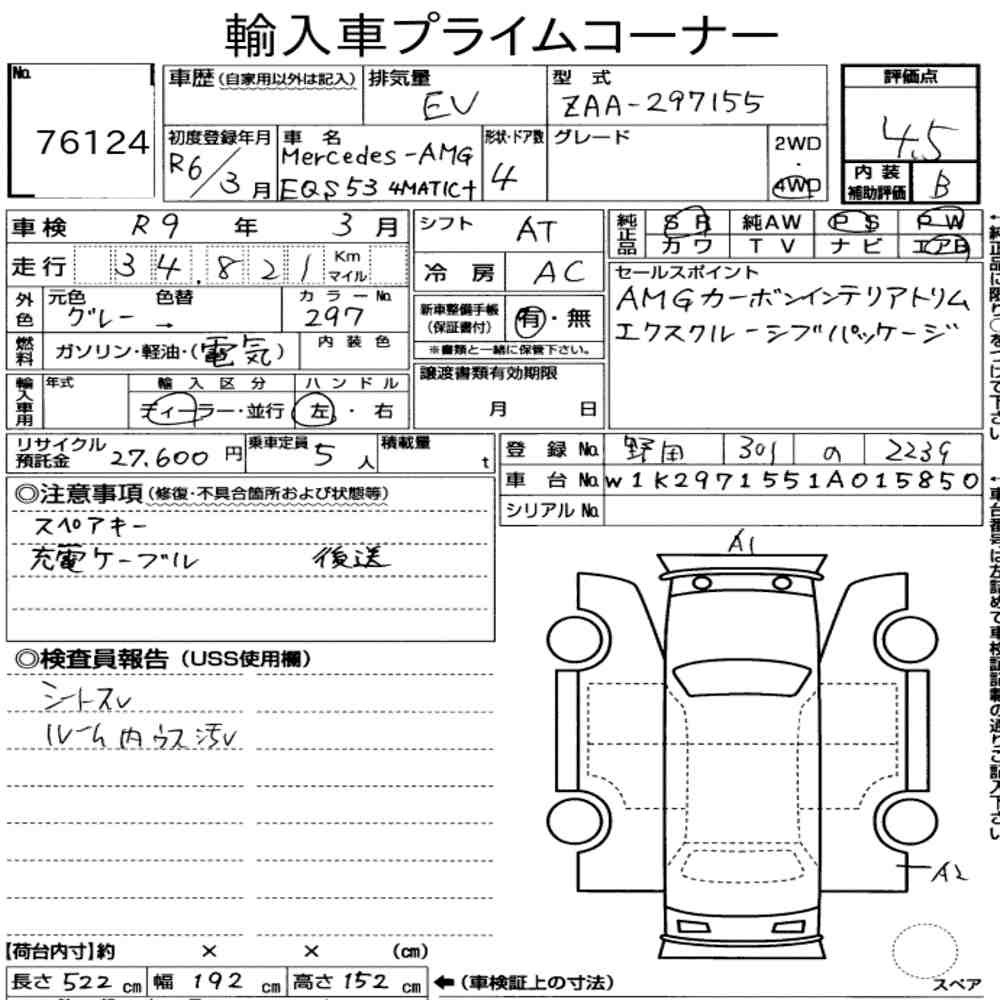 輸入車プライムコーナー
No.
76124
車歴(自家用以外は記入)
排気量
EV
型式
ZAA-297155
評価点
4.5
初度登録年月
R6/3月
車名
Mercedes-AMG
EQS53 4MATIC+
形状・ドア数
4
グレード
2WD
・
4WD
内装
補助評価
B
車検 R9年 3月
シフト AT
純正品
SR 純AW PS PW
カワ TV ナビ エアB
走行 34,821 Km
マイル
冷房 AC
セールスポイント
AMGカーボンインテリアトリム
エクスクルーシブパッケージ
外色
元色 色替
グレー →
カラーNo.
297
新車整備手帳
(保証書付)
有・無
※書類と一緒に保管下さい。
燃料
ガソリン・軽油・(電気)
内装色
譲渡書類有効期限
月 日
輸入車用
年式
輸入区分
ディーラー・並行
ハンドル
左・右
リサイクル
預託金
27,600円
乗車定員 5人
積載量 t
登録No. 野田 301 の 2239
車台No. W1K2971551A015850
シリアルNo.
◎注意事項(修復・不具合箇所および状態等)
スペアキー
充電ケーブル 後送
◎検査員報告(USS使用欄)
シートスレ
ルーム内ウス汚レ
A1
A2
【荷台内寸】約 × × (cm)
長さ522cm 幅192cm 高さ152cm
←(車検証上の寸法)
スペア
←純正品に限り○をつけて下さい
←車台番号は左詰めで車検証記載の通りご記入下さい